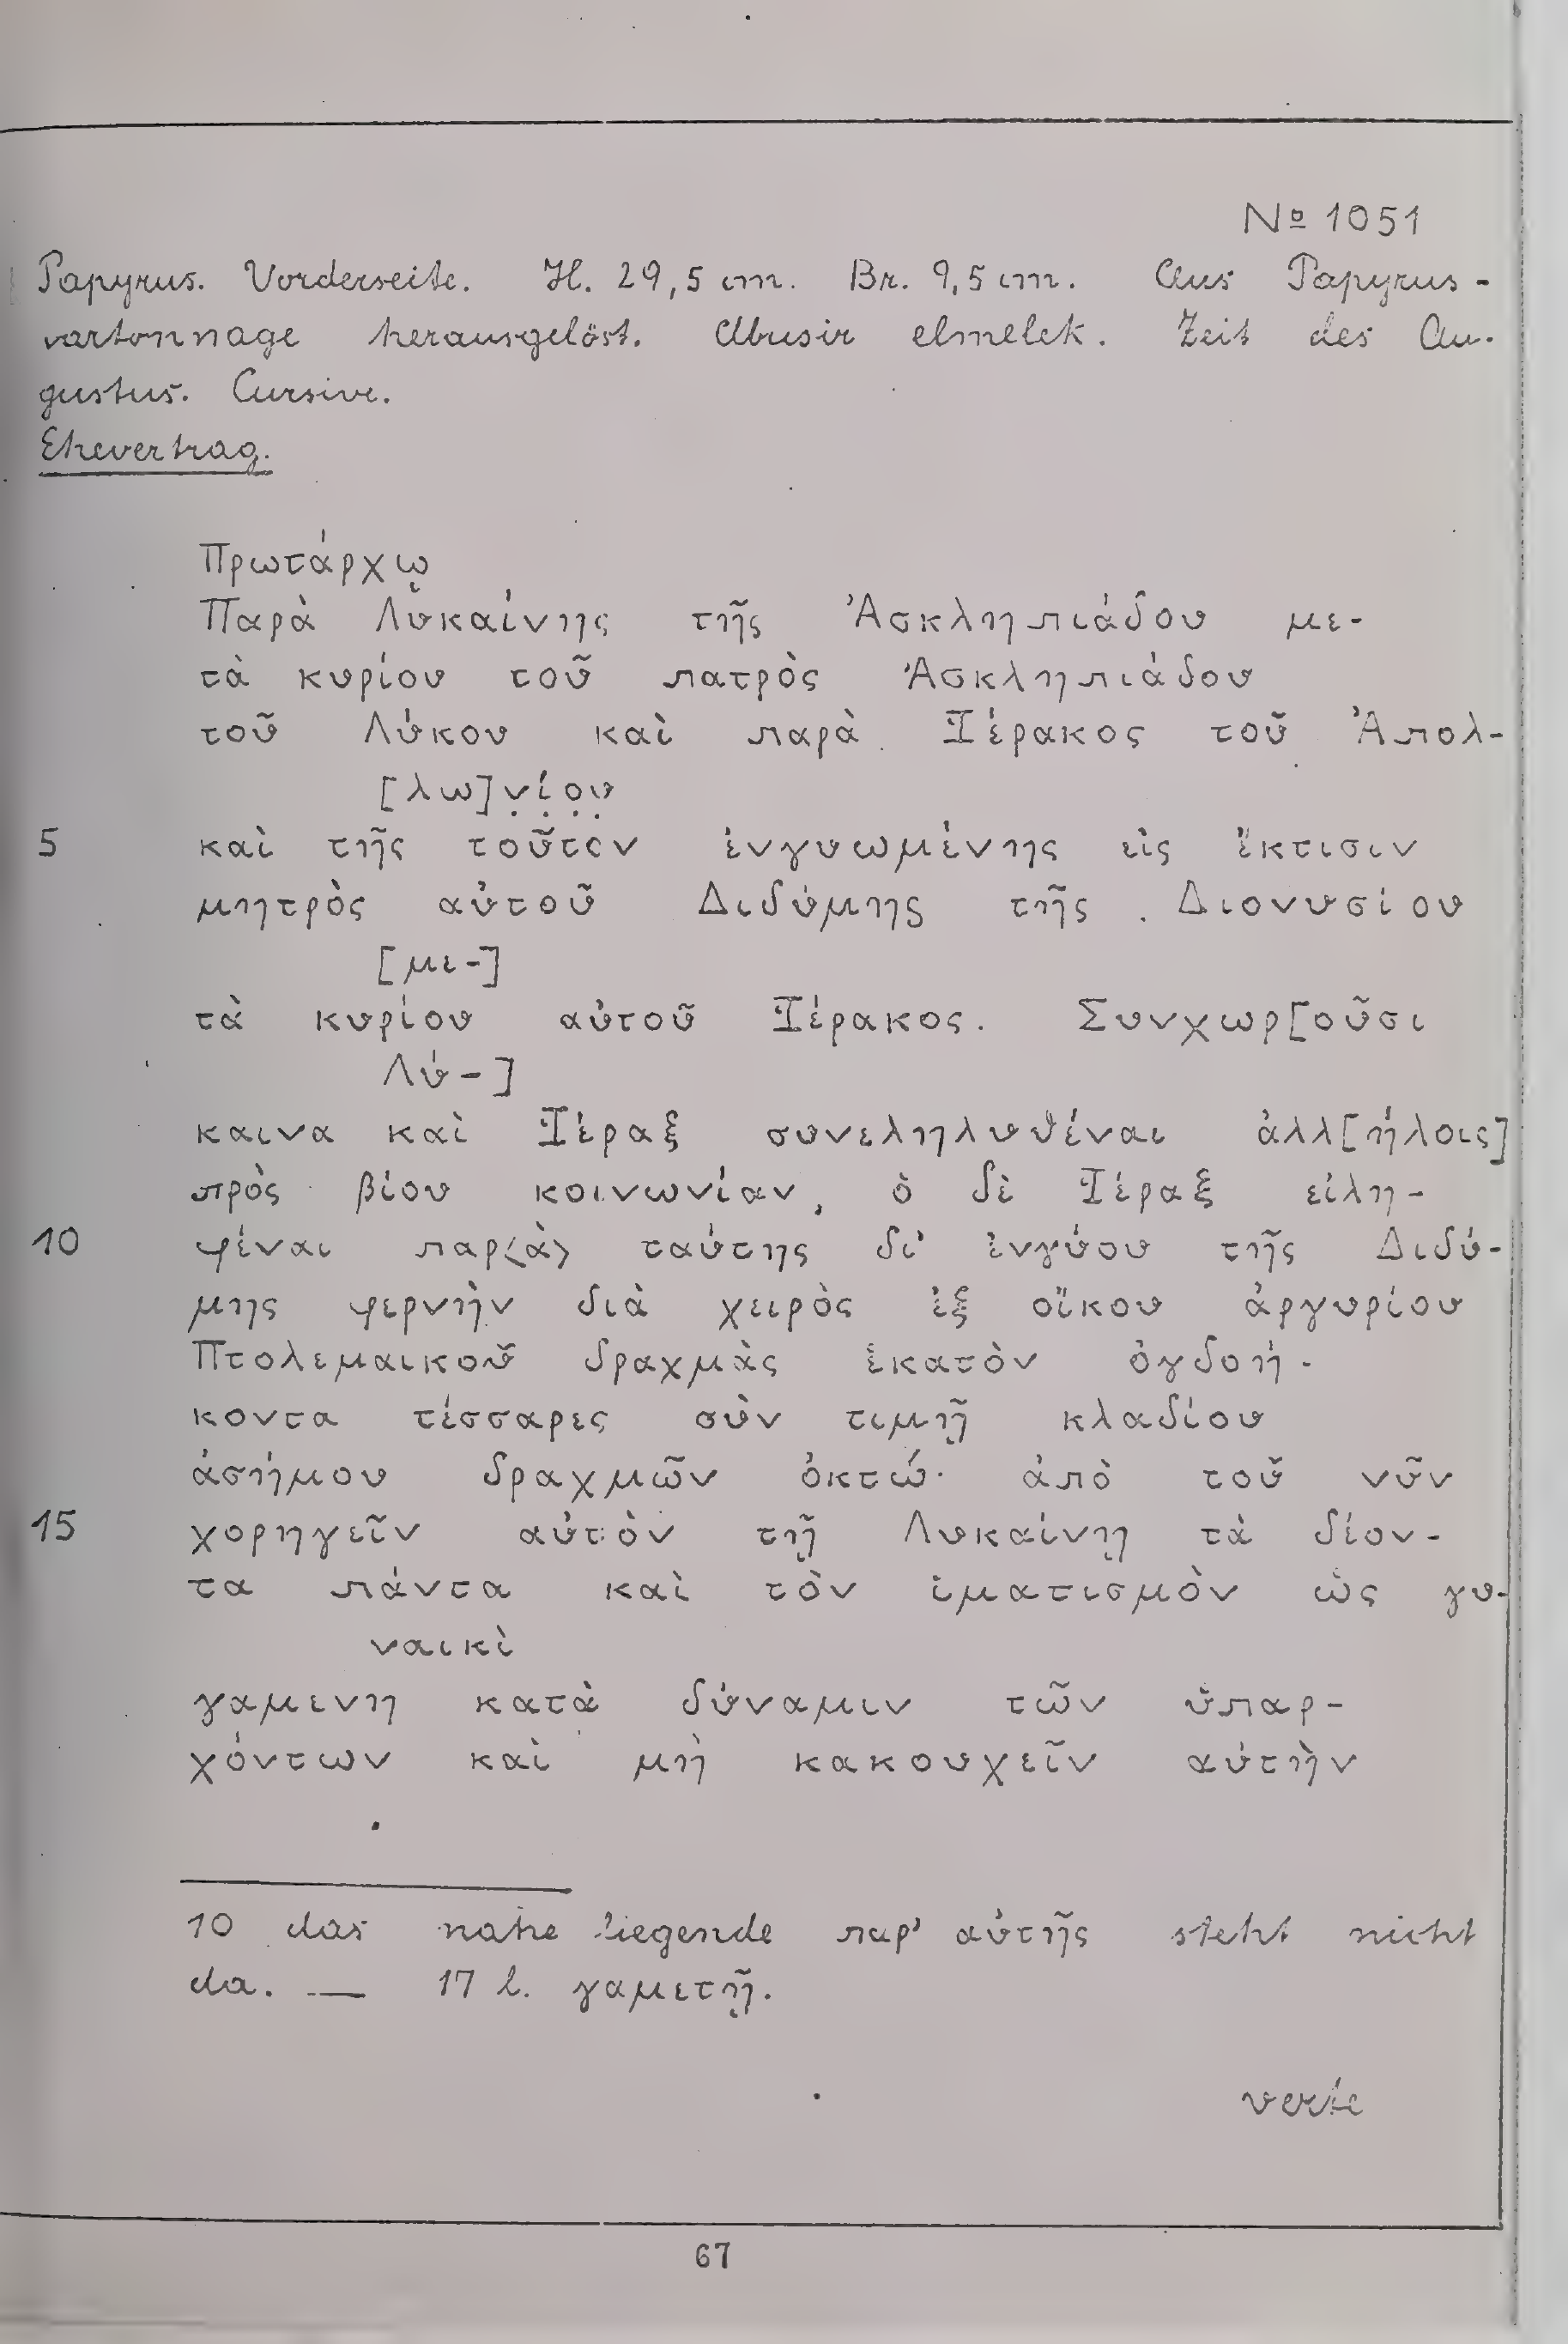 № 1051
Papyrus. Vorderseite. H. 29,5 cm. Br. 9,5 cm. Aus Papyrus-
cartonnage herausgelöst. Abusir elmelek. Zeit des Au-
gustus. Cursive.
Ehevertrag.
Πρωτάρχῳ
Παρὰ Λυκαίνης τῆς Ἀσκληπιάδου με-
τὰ κυρίου τοῦ πατρὸς Ἀσκληπιάδου
τοῦ Λύκου καὶ παρὰ Ἱέρακος τοῦ Ἀπολ-
[λω]ν̣ί̣ο̣υ̣
5 καὶ τῆς τοῦτον ἐνγυωμένης εἰς ἔκτισιν
μητρὸς αὐτοῦ Διδύμης τῆς Διονυσίου
[με-]
τὰ κυρίου αὐτοῦ Ἱέρακος. Συνχωρ[οῦσι
Λύ-]
καινα καὶ Ἱέραξ συνεληλυθέναι ἀλλ[ήλοις]
πρὸς βίου κοινωνίαν, ὁ δὲ Ἱέραξ εἰλη-
10 φέναι παρ<ὰ> ταύτης δι' ἐνγύου τῆς Διδύ-
μης φερνὴν διὰ χειρὸς ἐξ οἴκου ἀργυρίου
Πτολεμαικοῦ δραχμὰς ἑκατὸν ὀγδοή-
κοντα τέσσαρες σὺν τιμῇ κλαδίου
ἀσήμου δραχμῶν ὀκτώ· ἀπὸ τοῦ νῦν
15 χορηγεῖν αὐτὸν τῇ Λυκαίνῃ τὰ δέον-
τα πάντα καὶ τὸν ἱματισμὸν ὡς γυ-
ναικὶ
γαμενη κατὰ δύναμιν τῶν ὑπαρ-
χόντων καὶ μὴ κακουχεῖν αὐτὴν
10 das nahe liegende παρ' αὐτῆς steht nicht
da. — 17 l. γαμετῇ.
verte
67